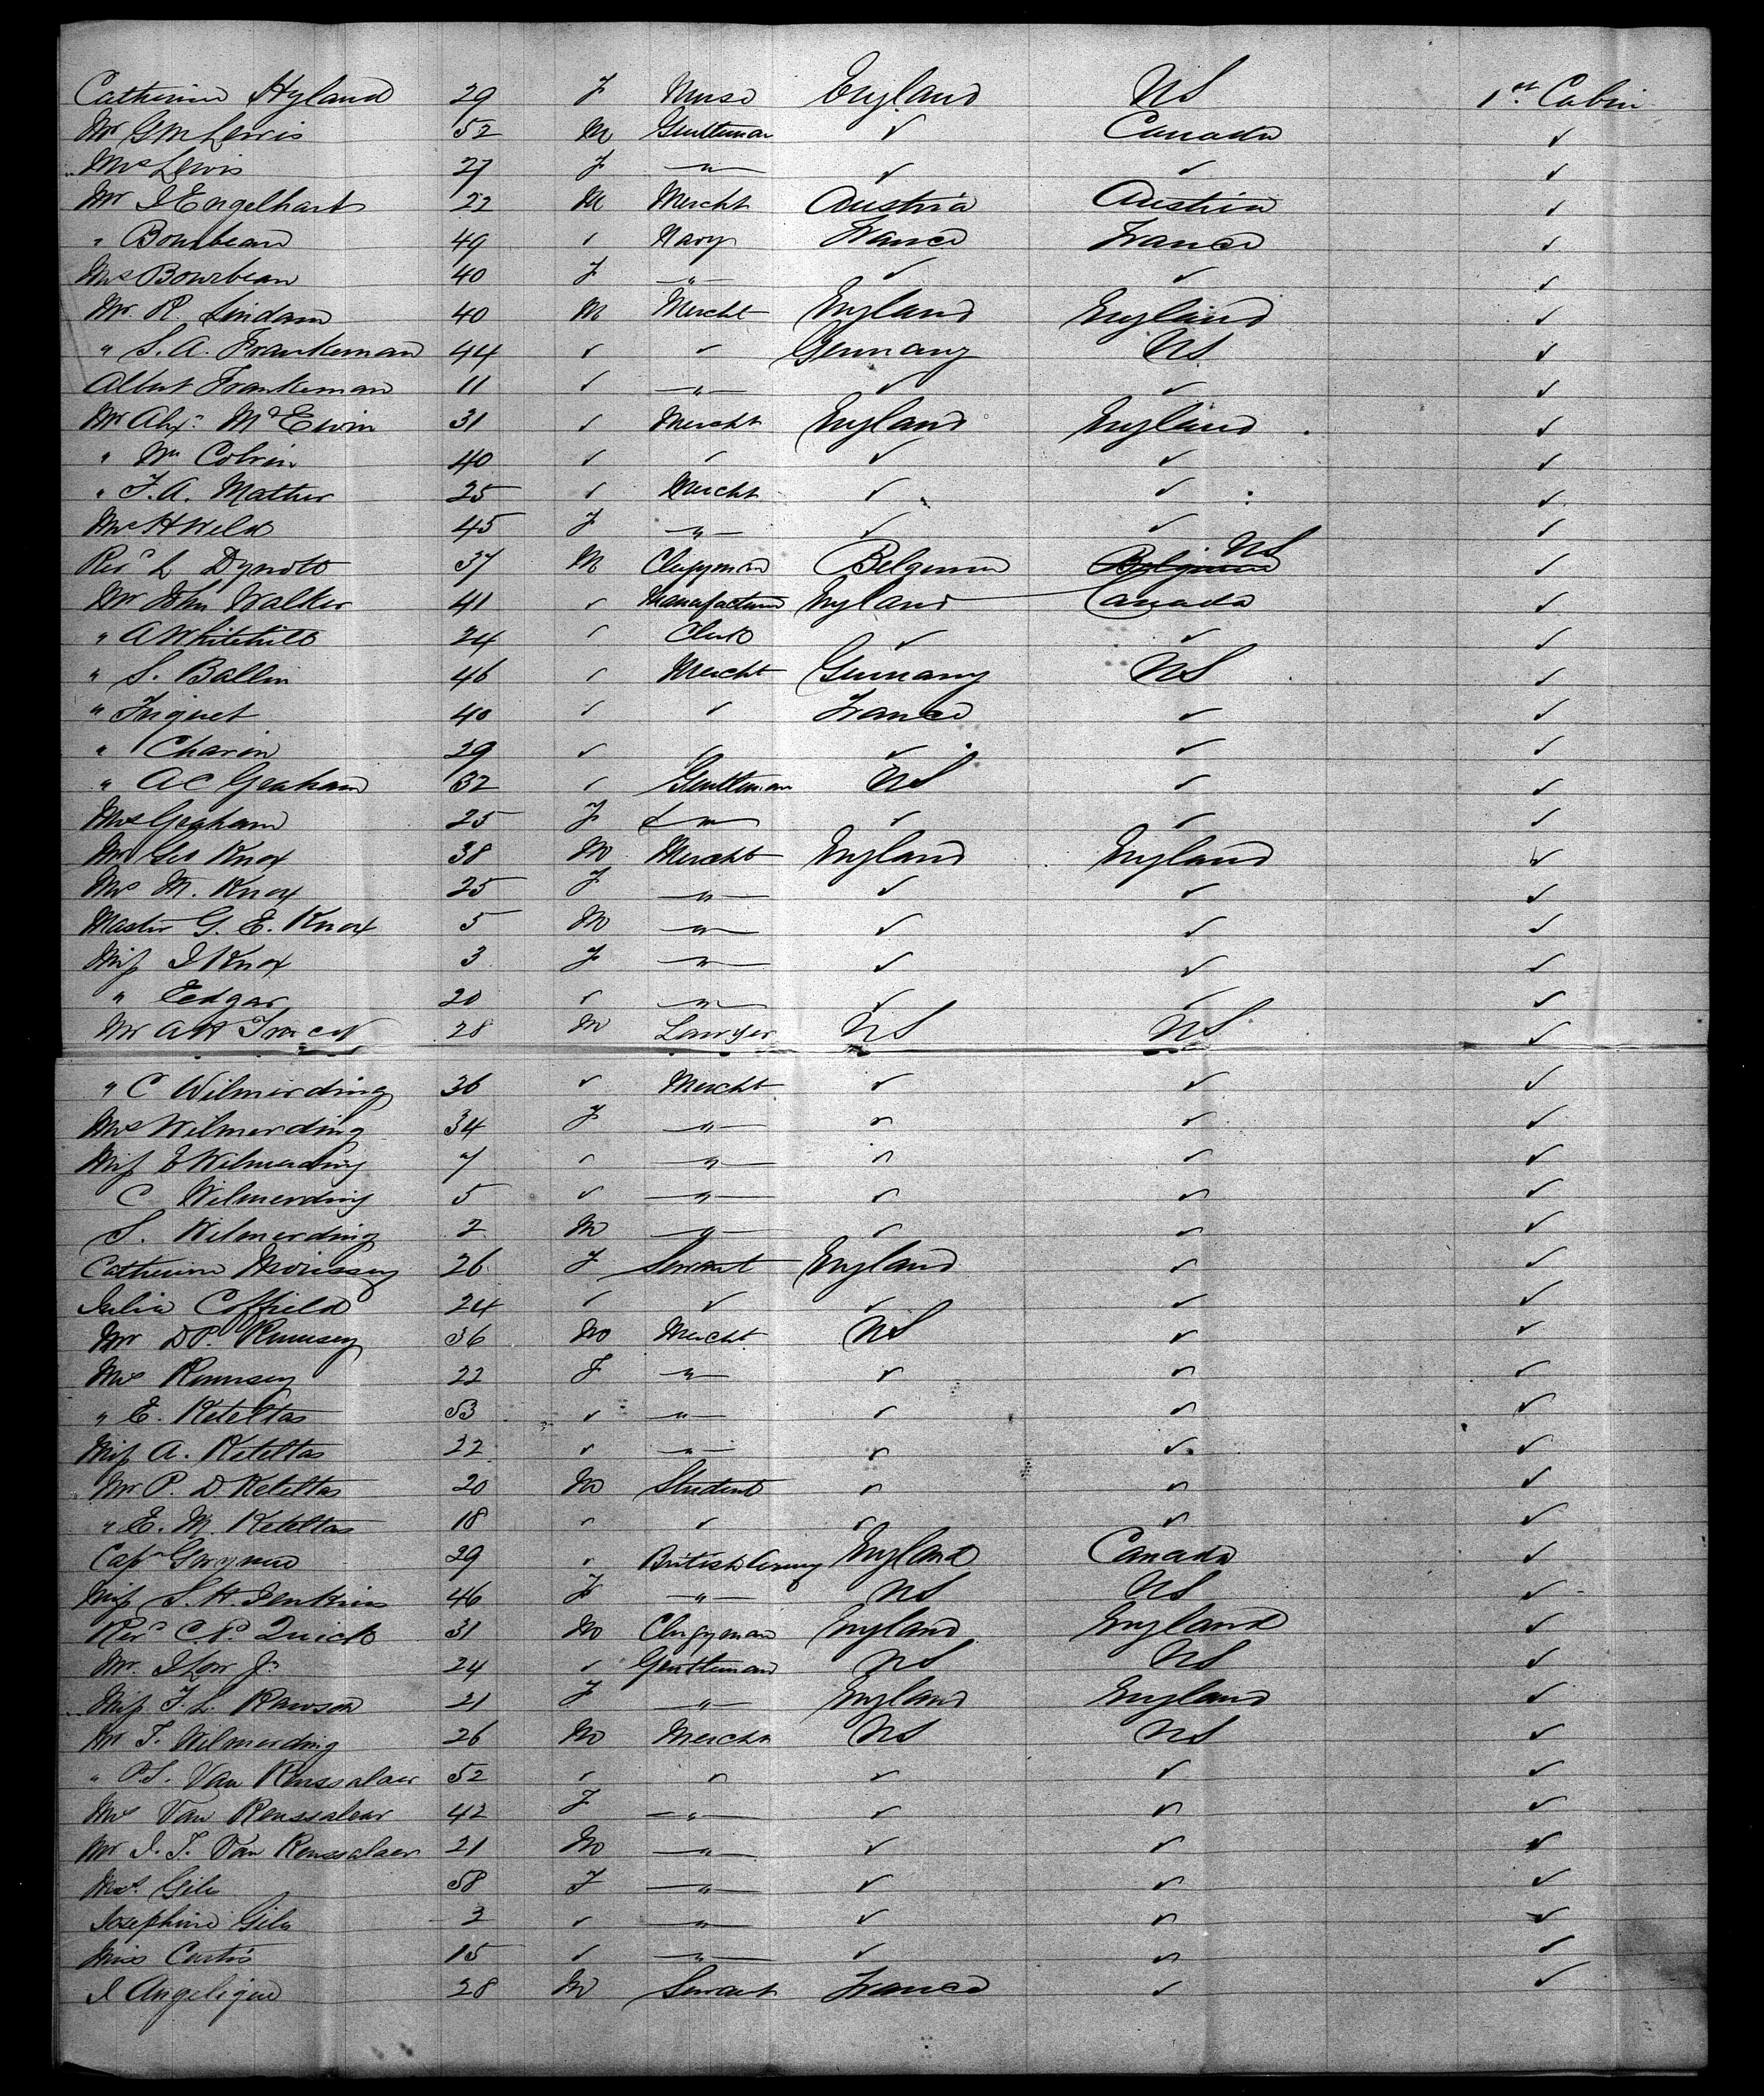 Catherine Hyland 29 F Nurse England US 1st Cabin
Mr G M Lewis 52 M Gentleman ✓ Canada ✓
Mrs Lewis 27 F —"— ✓ ✓ ✓
Mr J Engelhart 22 M Mercht Austria Austria ✓
" Bourbean 49 ✓ Navy France France ✓
Mrs Bourbean 40 F —"— ✓ ✓ ✓
Mr. R. Lindam 40 M Mercht England England ✓
" S. A. Frankeman 44 ✓ ✓ Germany US ✓
Albert Frankeman 11 ✓ —"— ✓ ✓ ✓
Mr Alex. McEwin 31 ✓ Mercht England England ✓
" Wm Colvin 40 ✓ ✓ ✓ ✓ ✓
" F. A. Mather 25 ✓ Mercht ✓ ✓ ✓
Mrs H Weld 45 F —"— ✓ ✓ ✓
Revd L 37 M Clergyman Belgium Belgium US ✓
Mr John Walker 41 ✓ Manufacturer England Canada ✓
" A Whitehill 24 ✓ Clerk ✓ ✓ ✓
" S. Ballin 46 ✓ Mercht Germany US ✓
" 40 ✓ ✓ France ✓ ✓
" Charin 29 ✓ ✓ ✓ ✓ ✓
" A C Graham 32 ✓ Gentleman US ✓ ✓
Mrs Graham 25 F —"— ✓ ✓ ✓
Mr Geo Knox 38 M Mercht England England ✓
Mrs M. Knox 25 F —"— ✓ ✓ ✓
Master G. E. Knox 5 M —"— ✓ ✓ ✓
Miss J Knox 3 F —"— ✓ ✓ ✓
" Eedgar 20 ✓ —"— ✓ ✓ ✓
Mr A H 28 M Lawyer US US ✓
" C Wilmerding 36 ✓ Mercht ✓ ✓ ✓
Mrs Wilmerding 34 F —"— ✓ ✓ ✓
Miss E Wilmerding 7 ✓ —"— ✓ ✓ ✓
C Wilmerding 5 ✓ —"— ✓ ✓ ✓
S. Wilmerding 2 M —"— ✓ ✓ ✓
Catherine Morissey 26 F Servant England ✓ ✓
Julia Coffield 24 ✓ ✓ ✓ ✓ ✓
Mr D P. Rumsey 36 M Mercht US ✓ ✓
Mrs Rumsey 22 F —"— ✓ ✓ ✓
" E. Keteltas 53 ✓ —"— ✓ ✓ ✓
Miss A. Keteltas 22 ✓ —"— ✓ ✓ ✓
Mr P. D Keteltas 20 M Student ✓ ✓ ✓
" E. M. Keteltas 18 ✓ ✓ ✓ ✓ ✓
Capt Gwynne 29 ✓ British Army England Canada ✓
Miss S. H. Jenkins 46 F —"— US US ✓
Revd C. P. Quick 31 M Clergyman England England ✓
Mr. J Low Jr 24 ✓ Gentleman US US ✓
Miss F. L. Rawson 21 F —"— England England ✓
Mr T. Wilmerding 26 M Mercht US US ✓
" P S. Van Renssalaer 52 ✓ ✓ ✓ ✓ ✓
Mrs Van Renssalear 42 F —"— ✓ ✓ ✓
Mr J. T. Van Renssalaer 21 M —"— ✓ ✓ ✓
Mrs. Giles 58 F —"— ✓ ✓ ✓
Josephine Giles 3 ✓ —"— ✓ ✓ ✓
Miss Curtis 15 ✓ —"— ✓ ✓ ✓
J Angelique 28 M Servant France ✓ ✓